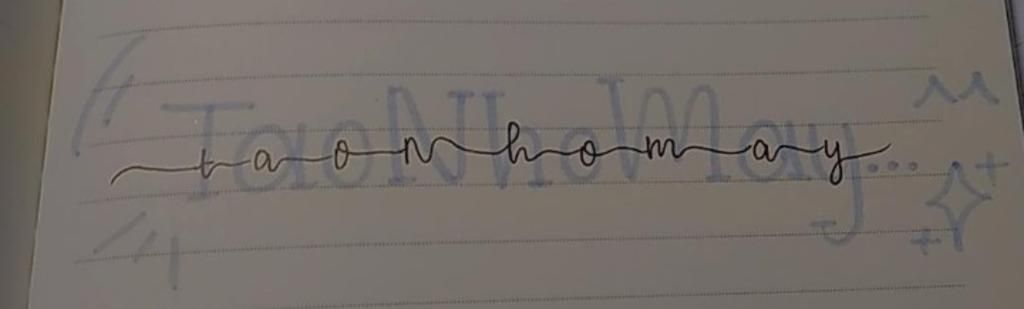 TaoNhoMay...
taoNhomay